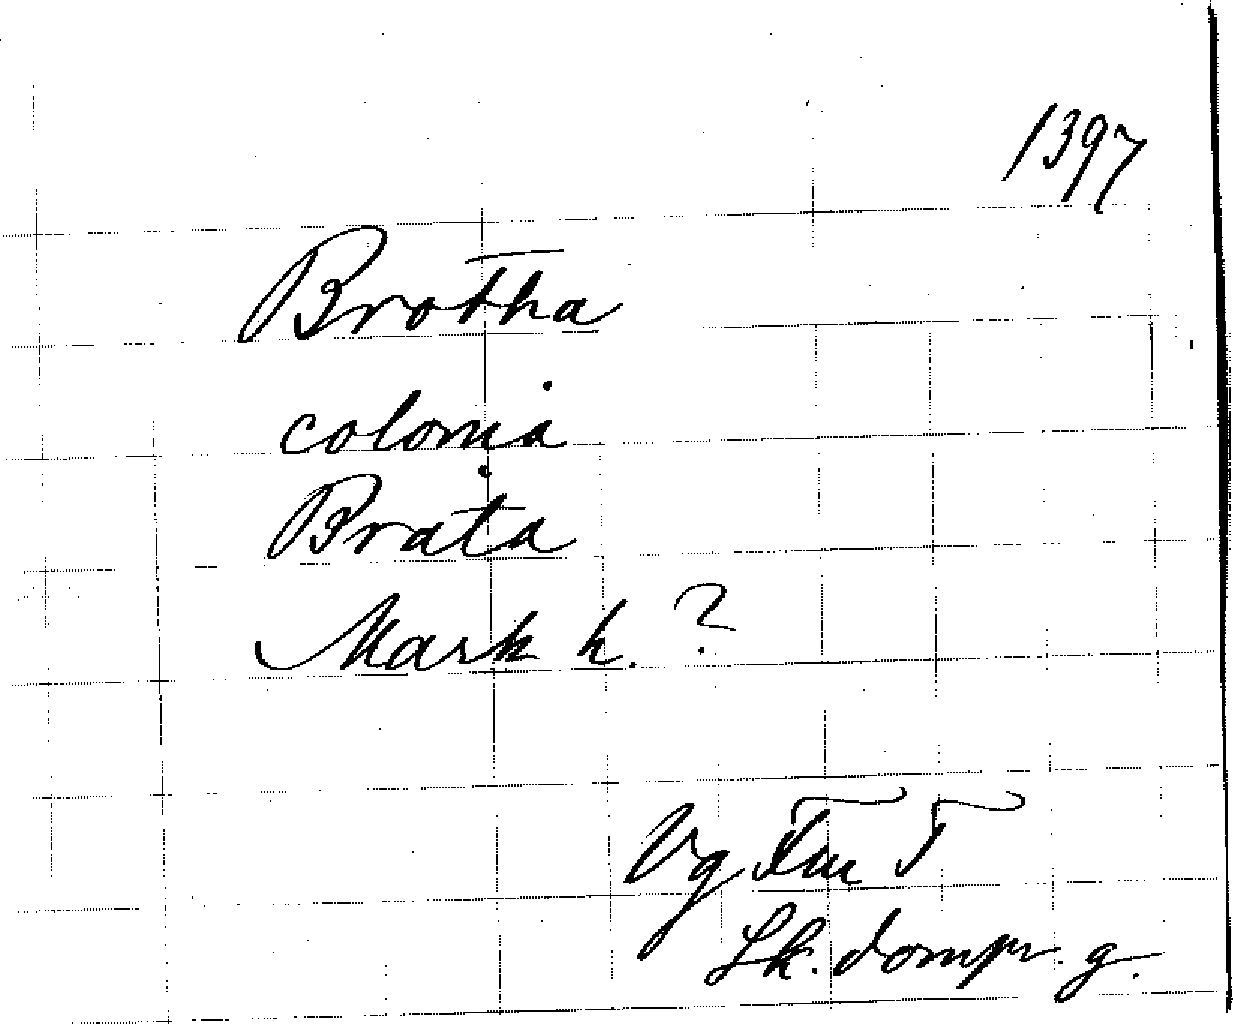 1397
Brotha
colonia
Brata
Mark h. ?
Vg Fw F
Lk. dompr. g.